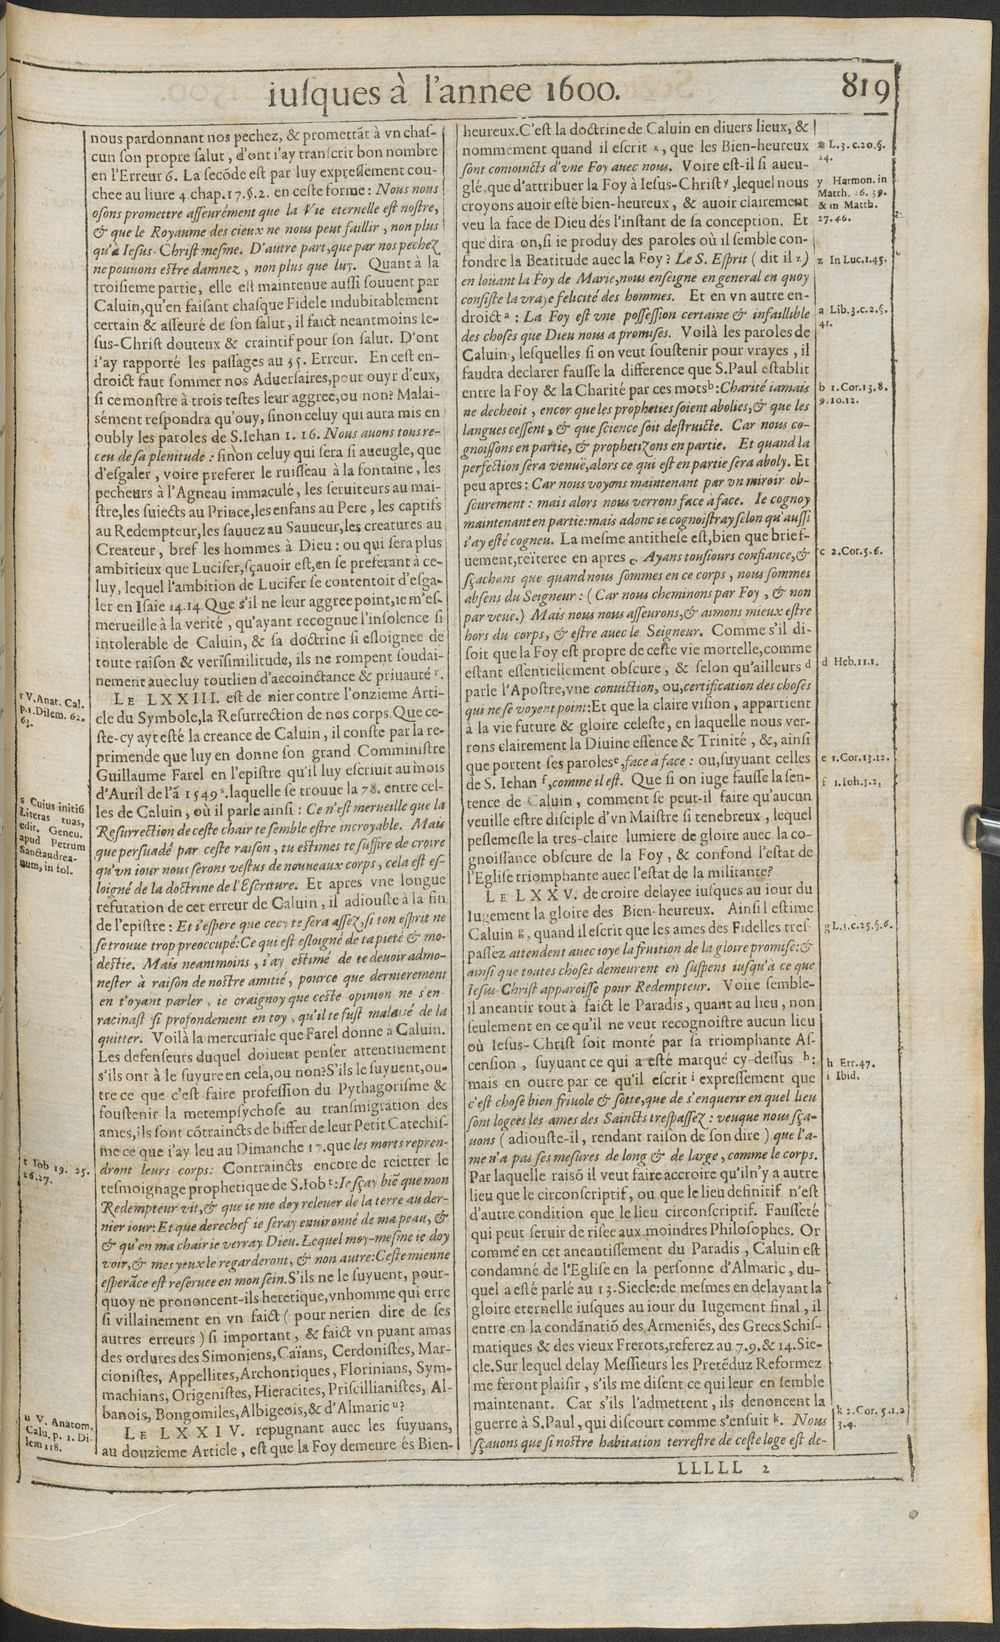 iuſques à l'annee 1600.
819
nous pardonnant nos pechez, & promettāt à vn chaſ-
cun ſon propre ſalut, d'ont i'ay tranſcrit bon nombre
en l'Erreur 6. La ſecōde eſt par luy expreſſement cou-
chee au liure 4. chap. 17. §. 2. en ceſte forme: Nous nous
oſons promettre aſſeurément que la Vie eternelle eſt noſtre,
& que le Royaume des cieux ne nous peut faillir, non plus
qu'à Ieſus-Chriſt meſme. D'autre part, que par nos pechez
ne pouuons eſtre damnez, non plus que luy. Quant à la
troiſieme partie, elle eſt maintenue auſſi ſouuent par
Caluin, qu'en faiſant chaſque Fidele indubitablement
certain & aſſeuré de ſon ſalut, il faict neantmoins Ie-
ſus-Chriſt douteux & craintif pour ſon ſalut. D'ont
i'ay rapporté les paſſages au 35. Erreur. En ceſt en-
droict faut ſommer nos Aduerſaires, pour ouyr d'eux,
ſi ce monſtre à trois teſtes leur aggree, ou non? Malai-
sément reſpondra qu'ouy, ſinon celuy qui aura mis en
oubly les paroles de S. Iehan 1. 16. Nous auons tous re-
ceu de ſa plenitude: ſinon celuy qui ſera ſi aueugle, que
d'eſgaler, voire preferer le ruiſſeau à la fontaine, les
pecheurs à l'Agneau immaculé, les ſeruiteurs au mai-
ſtre, les ſuiects au Prince, les enfans au Pere, les captifs
au Redempteur, les ſauuez au Sauueur, les creatures au
Createur, bref les hommes à Dieu: ou qui ſera plus
ambitieux que Lucifer, ſçauoir eſt, en ſe preferant à ce-
luy, lequel l'ambition de Lucifer ſe contentoit d'eſga-
ler en Iſaie 14. 14. Que s'il ne leur aggree point, ie m'eſ-
merueille à la verité, qu'ayant recognue l'inſolence ſi
intolerable de Caluin, & ſa doctrine ſi eſloignee de
toute raiſon & veriſimilitude, ils ne rompent ſoudai-
nement auec luy tout lien d'accoinctance & priuauté r.
LE LXXIII. eſt de nier contre l'onzieme Arti-
cle du Symbole, la Reſurrection de nos corps. Que ce-
ſte-cy ayt eſté la creance de Caluin, il conſte par la re-
primende que luy en donne ſon grand Comminiſtre
Guillaume Farel en l'epiſtre qu'il luy eſcriuit au mois
d'Auril de l'ā 1549 s. laquelle ſe trouue la 78. entre cel-
les de Caluin, où il parle ainſi: Ce n'eſt merueille que la
Reſurrection de ceſte chair te ſemble eſtre incroyable. Mais
que perſuadé par ceſte raiſon, tu eſtimes te ſuffire de croire
qu'vn iour nous ſerons veſtus de nouueaux corps, cela eſt eſ-
loigné de la doctrine de l'Eſcriture. Et apres vne longue
refutation de cet erreur de Caluin, il adiouſte à la fin
de l'epiſtre: Et i'eſpere que cecy te ſera aſſez, ſi ton eſprit ne
ſe trouue trop preoccupé: Ce qui eſt eſloigné de ta pieté & mo-
deſtie. Mais neantmoins, i'ay eſtimé de te deuoir admo-
neſter à raiſon de noſtre amitié, pource que dernierement
en t'oyant parler, ie craignoy que ceſte opinion ne s'en-
racinaſt ſi profondement en toy, qu'il te fuſt malaisé de la
quitter. Voilà la mercuriale que Farel donne à Caluin.
Les defenſeurs duquel doiuent penſer attentiuement
s'ils ont à le ſuyure en cela, ou non? S'ils le ſuyuent, ou-
tre ce que c'eſt faire profeſſion du Pythagoriſme &
ſouſtenir la metempſychoſe au tranſmigration des
ames, ils ſont cōtraincts de biffer de leur Petit Catechiſ-
me ce que i'ay leu au Dimanche 17. que les morts repren-
dront leurs corps: Contraincts encore de reietter le
teſmoignage prophetique de S. Iob t: Ie ſçay biē que mon
Redempteur vit, & que ie me doy releuer de la terre au der-
nier iour: Et que derechef ie ſeray enuironné de ma peau, &
& qu'en ma chair ie verray Dieu. Lequel moy-meſme ie doy
voir, & mes yeux le regarderont, & non autre: Ceſte mienne
eſperāce eſt reſeruee en mon ſein. S'ils ne le ſuyuent, pour-
quoy ne prononcent-ils heretique, vn homme qui erre
ſi villainement en vn faict (pour ne rien dire de ſes
autres erreurs) ſi important, & faict vn puant amas
des ordures des Simoniens, Caïans, Cerdoniſtes, Mar-
cioniſtes, Appellites, Archontiques, Florinians, Sym-
machians, Origeniſtes, Hieracites, Priſcillianiſtes, Al-
banois, Bongomiles, Albigeois, & d'Almaric u?
LE LXXIV. repugnant auec les ſuyuans,
au douzieme Article, eſt que la Foy demeure és Bien-
r V. Anat. Cal.
p. 1. Dilem. 62.
63.
s Cuius initiū
Literas tuas,
edit. Geneu.
apud Petrum
Sanctandrea-
num, in fol.
t Iob 19. 25.
26. 27.
u V. Anatom.
Calu. p. 1. Di-
lem 118.
heureux. C'eſt la doctrine de Caluin en diuers lieux, &
nommément quand il eſcrit x, que les Bien-heureux
ſont conioincts d'vne Foy auec nous. Voire eſt-il ſi aueu-
glé, que d'attribuer la Foy à Ieſus-Chriſt y, lequel nous
croyons auoir eſté bien-heureux, & auoir clairement
veu la face de Dieu dés l'inſtant de ſa conception. Et
que dira-on, ſi ie produy des paroles où il ſemble con-
fondre la Beatitude auec la Foy? Le S. Eſprit (dit il z)
en loüant la Foy de Marie, nous enſeigne en general en quoy
conſiſte la vraye felicité des hommes. Et en vn autre en-
droict a: La Foy eſt vne poſſeſſion certaine & infaillible
des choſes que Dieu nous a promiſes. Voilà les paroles de
Caluin, leſquelles ſi on veut ſouſtenir pour vrayes, il
faudra declarer fauſſe la difference que S. Paul eſtablit
entre la Foy & la Charité par ces mots b: Charité iamais
ne decheoit, encor que les propheties ſoient abolies, & que les
langues ceſſent, & que ſcience ſoit deſtruicte. Car nous co-
gnoiſſons en partie, & prophetizons en partie. Et quand la
perfection ſera venuë, alors ce qui eſt en partie ſera aboly. Et
peu apres: Car nous voyons maintenant par vn miroir ob-
ſcurement: mais alors nous verrons face à face. Ie cognoy
maintenant en partie: mais adonc ie cognoiſtray ſelon qu'auſſi
i'ay eſté cogneu. La meſme antitheſe eſt, bien que brief-
uement, reïteree en apres c. Ayans touſiours confiance, &
ſçachans que quand nous ſommes en ce corps, nous ſommes
abſens du Seigneur: (Car nous cheminons par Foy, & non
par veuë.) Mais nous nous aſſeurons, & aimons mieux eſtre
hors du corps, & eſtre auec le Seigneur. Comme s'il di-
ſoit que la Foy eſt propre de ceſte vie mortelle, comme
eſtant eſſentiellement obſcure, & ſelon qu'ailleurs d
parle l'Apoſtre, vne conuiction, ou, certification des choſes
qui ne ſe voyent point: Et que la claire viſion, appartient
à la vie future & gloire celeſte, en laquelle nous ver-
rons clairement la Diuine eſſence & Trinité, &, ainſi
que portent ſes paroles e, face à face: ou, ſuyuant celles
de S. Iehan f, comme il eſt. Que ſi on iuge fauſſe la ſen-
tence de Caluin, comment ſe peut-il faire qu'aucun
veuille eſtre diſciple d'vn Maiſtre ſi tenebreux, lequel
peſlemeſle la tres-claire lumiere de gloire auec la co-
gnoiſſance obſcure de la Foy, & confond l'eſtat de
l'Egliſe triomphante auec l'eſtat de la militante?
LE LXXV. de croire delayee iuſques au iour du
Iugement la gloire des Bien-heureux. Ainſi l'eſtime
Caluin g, quand il eſcrit que les ames des Fidelles treſ-
paſſez attendent auec ioye la fruition de la gloire promiſe: &
ainſi que toutes choſes demeurent en ſuſpens iuſqu'à ce que
Ieſus-Chriſt apparoiſſe pour Redempteur. Voire ſemble-
il aneantir tout à faict le Paradis, quant au lieu, non
ſeulement en ce qu'il ne veut recognoiſtre aucun lieu
où Ieſus-Chriſt ſoit monté par ſa triomphante Aſ-
cenſion, ſuyuant ce qui a eſté marqué cy-deſſus h:
mais en outre par ce qu'il eſcrit i expreſſement que
c'eſt choſe bien friuole & ſotte, que de s'enquerir en quel lieu
ſont logees les ames des Saincts treſpaſſez: veu que nous ſça-
uons (adiouſte-il, rendant raiſon de ſon dire) que l'a-
me n'a pas ſes meſures de long & de large, comme le corps.
Par laquelle raiſō il veut faire accroire qu'il n'y a autre
lieu que le circonſcriptif, ou que le lieu definitif n'eſt
d'autre condition que le lieu circonſcriptif. Fauſſeté
qui peut ſeruir de riſee aux moindres Philoſophes. Or
comme en cet aneantiſſement du Paradis, Caluin eſt
condamné de l'Egliſe en la perſonne d'Almaric, du-
quel a eſté parlé au 13. Siecle: de meſmes en delayant la
gloire eternelle iuſques au iour du Iugement final, il
entre en la condānatiō des Armeniēs, des Grecs Schiſ-
matiques & des vieux Frerots, referez au 7. 9. & 14. Sie-
cle. Sur lequel delay Meſſieurs les Pretēduz Reformez
me feront plaiſir, s'ils me diſent ce qui leur en ſemble
maintenant. Car s'ils l'admettent, ils denoncent la
guerre à S. Paul, qui diſcourt comme s'enſuit k. Nous
ſçauons que ſi noſtre habitation terreſtre de ceſte loge eſt de-
x L. 3. c. 20. §.
24.
y Harmon. in
Matth. 26. 39.
& in Matth.
27. 46.
z In Luc. 1. 45.
a Lib. 3. c. 2. §.
41.
b 1. Cor. 13. 8.
9. 10. 12.
c 2. Cor. 5. 6.
d Heb. 11. 1.
e 1. Cor. 13. 12.
f 1. Ioh. 3. 2.
g L. 3. c. 25. §. 6.
h Err. 47.
i Ibid.
k 2. Cor. 5. 1. 2
3. 4.
LLLLL 2